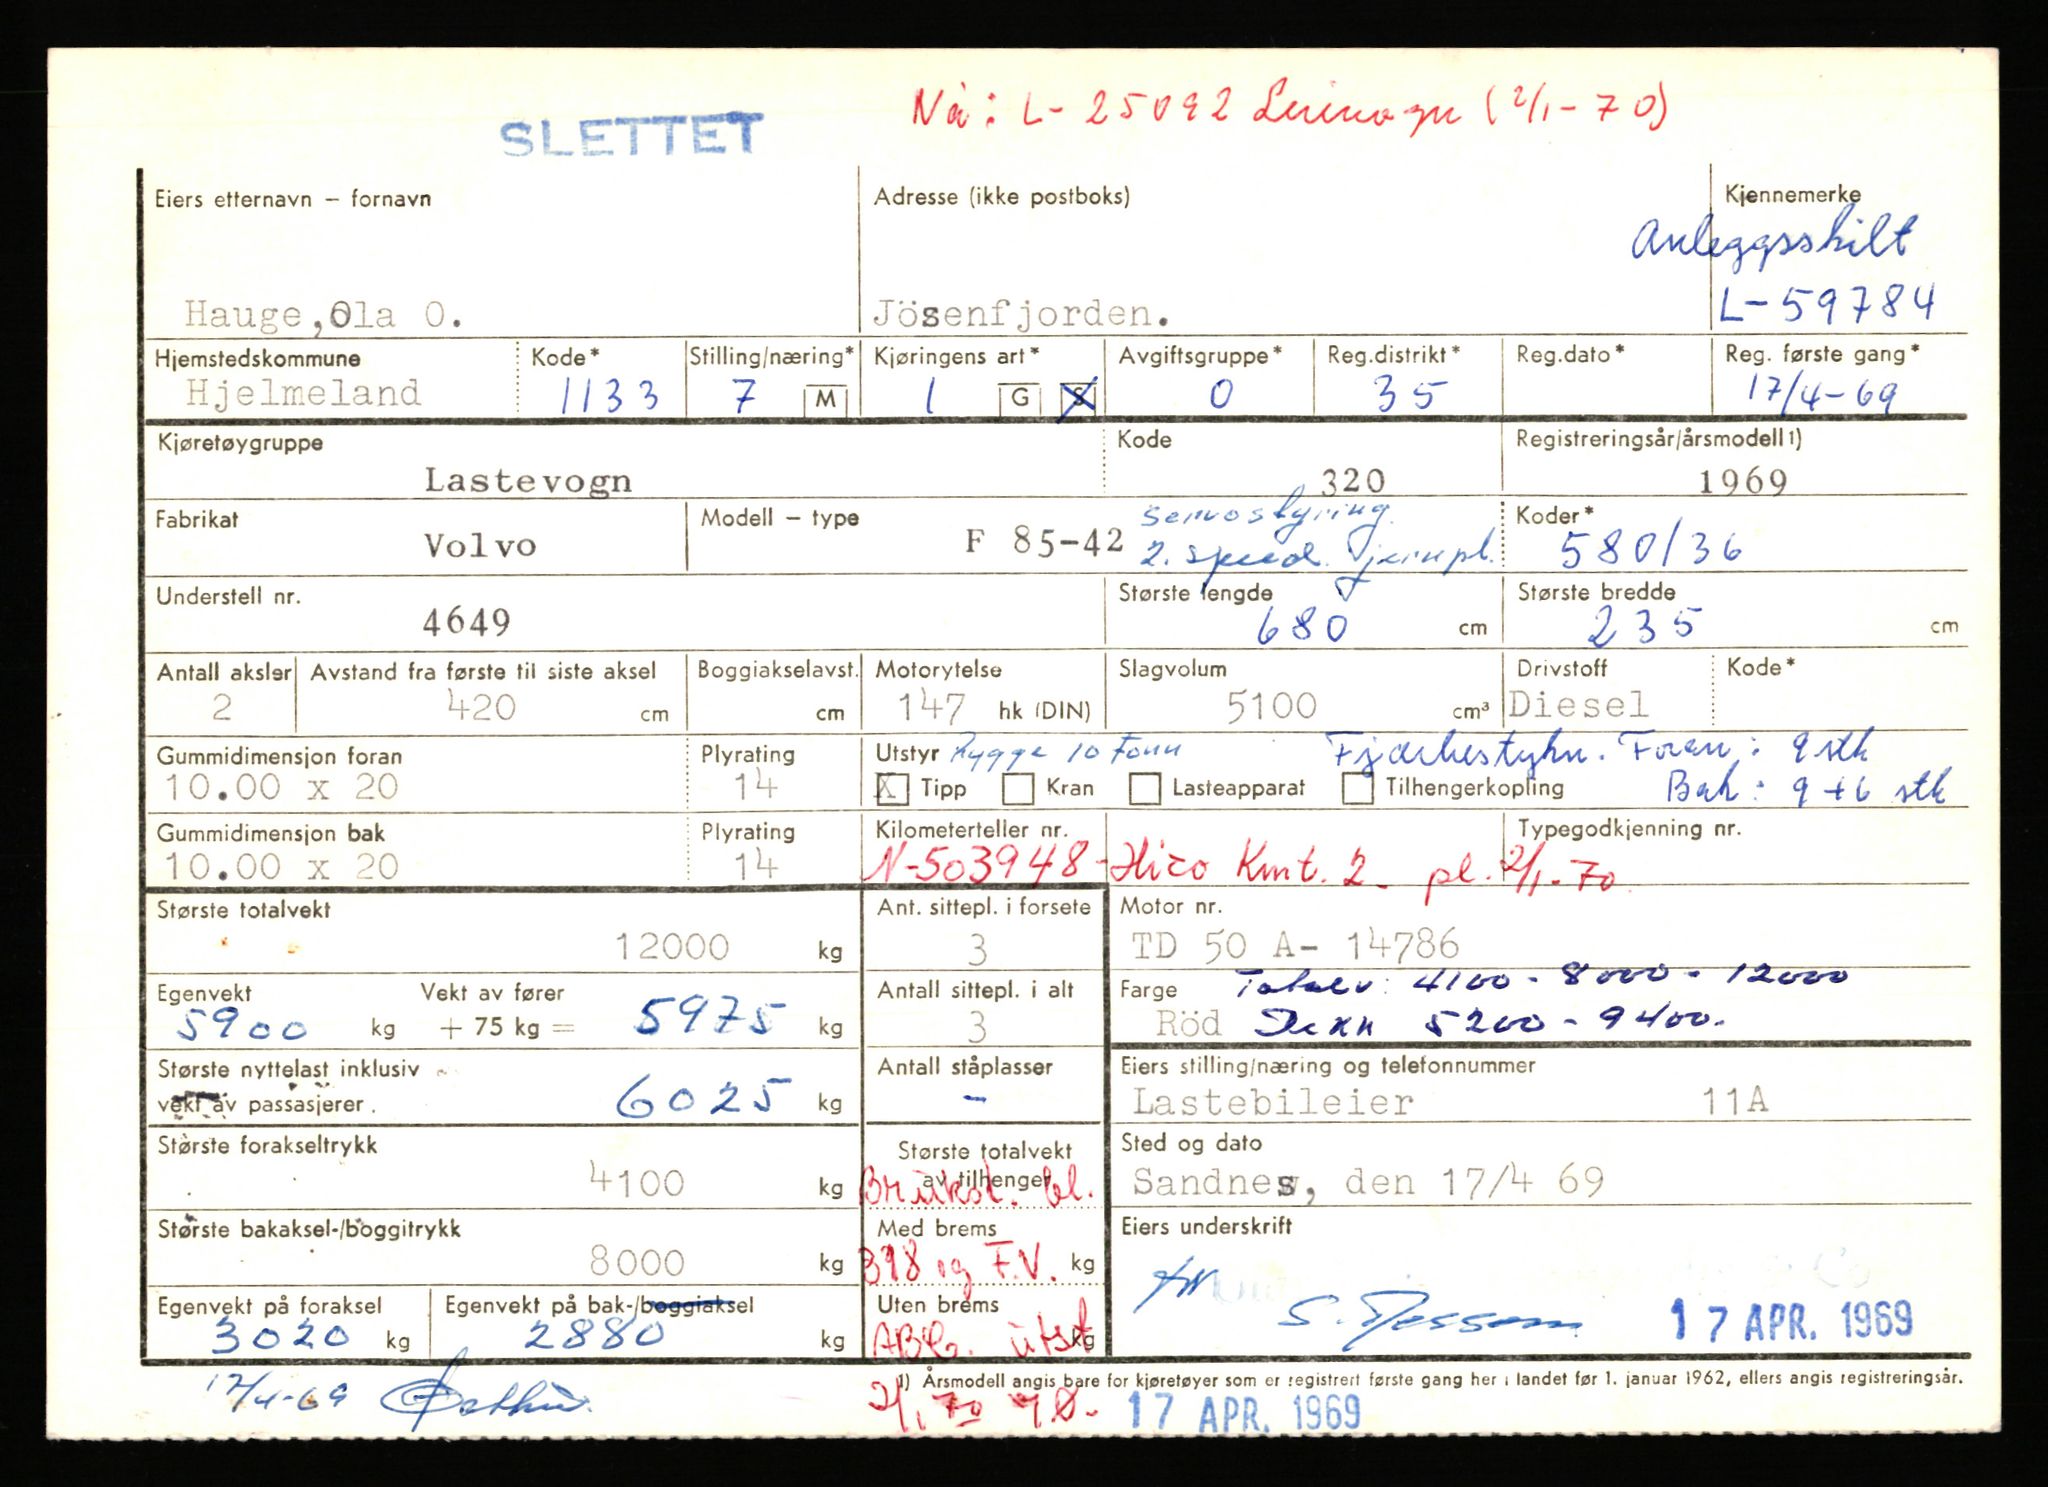 Nå: L-25092 (2/1-70)
SLETTET
Eiers etternavn – fornavn
Adresse (ikke postboks)
Kjennemerke
Anleggsskilt
Hauge, Ola O.
Jösenfjorden.
L-59784
Hjemstedskommune
Kode*
Stilling/næring*
Kjøringens art*
Avgiftsgruppe*
Reg.distrikt*
Reg.dato*
Reg. første gang*
Hjelmeland
1133
7 M
1 G S
0
35
17/4-69
Kjøretøygruppe
Kode
Registreringsår/årsmodell 1)
Lastevogn
320
1969
Fabrikat
Modell – type
servostyring
Koder*
Volvo
F 85-42
2. speed.
580/36
Understell nr.
Største lengde
Største bredde
4649
680 cm
235 cm
Antall aksler
Avstand fra første til siste aksel
Boggiakselavst.
Motorytelse
Slagvolum
Drivstoff
Kode*
2
420 cm
cm
147 hk (DIN)
5100 cm³
Diesel
Gummidimensjon foran
Plyrating
Utstyr
Rygge 10 Tonn
Foran: 9 stk
10.00 x 20
14
X Tipp
Kran
Lasteapparat
Tilhengerkopling
Bak: 9+6 stk
Gummidimensjon bak
Plyrating
Kilometerteller nr.
Typegodkjenning nr.
10.00 x 20
14
N-503948-Hico Kmt. 2 - pl. 2/1-70.
Største totalvekt
Ant. sittepl. i forsete
Motor nr.
12000 kg
3
TD 50 A- 14786
Egenvekt
Vekt av fører
Antall sittepl. i alt
Farge
Totalv: 4100-8000-12000
5900 kg
+ 75 kg =
5975 kg
3
Röd
5200-9400.
Største nyttelast inklusiv
vekt av passasjerer.
6025 kg
Antall ståplasser
-
Eiers stilling/næring og telefonnummer
Lastebileier
11A
Største forakseltrykk
Største totalvekt
av tilhenger
Sted og dato
4100 kg
Brukst. bl.
Sandnes, den 17/4 69
Største bakaksel-/boggitrykk
Med brems
Eiers underskrift
8000 kg
398 og F.V. kg
Egenvekt på foraksel
Egenvekt på bak-/boggiaksel
Uten brems
17 APR. 1969
3020 kg
2880 kg
utst kg
1) Årsmodell angis bare for kjøretøyer som er registrert første gang her i landet før 1. januar 1962, ellers angis registreringsår.
17/4-69
2/1.70
17 APR. 1969